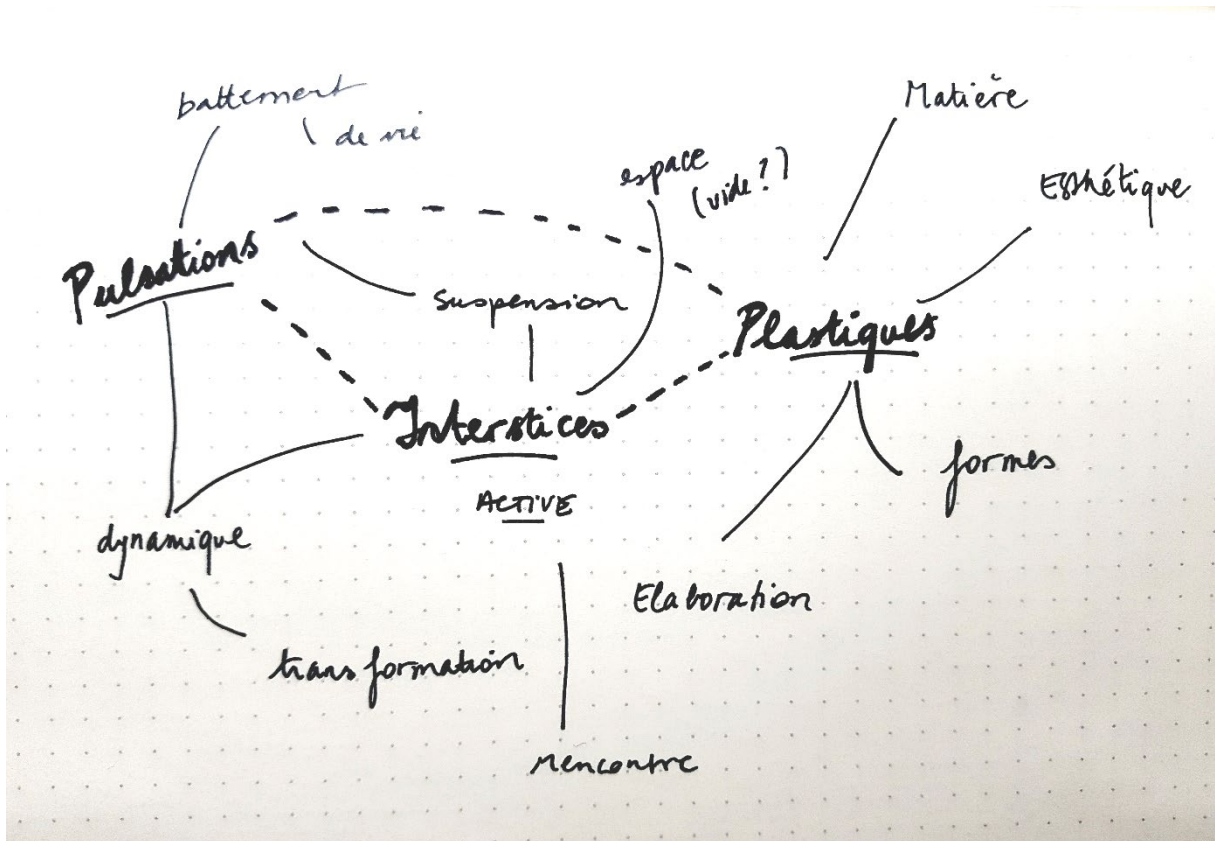 battement
de vie
Matière
espace
(vide ?)
Esthétique
Pulsations
Suspension
Plastiques
Interstices
formes
ACTIVE
dynamique
Elaboration
transformation
rencontre